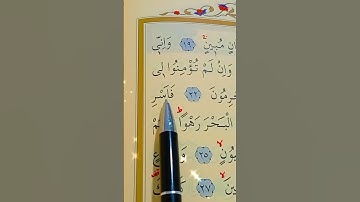 انٍ مُب۪ينٍۚ ﴿١٩﴾ وَاِنّ۪ي
وَاِنْ لَمْ تُؤْمِنُوا ل۪ي
جْرِمُونَ ﴿٢٢﴾ فَاَسْرِ
الْبَحْرَ رَهْوًاۜ
يُونٍۙ ﴿٢٥﴾ وَ
ينَۙ ﴿٢٧﴾